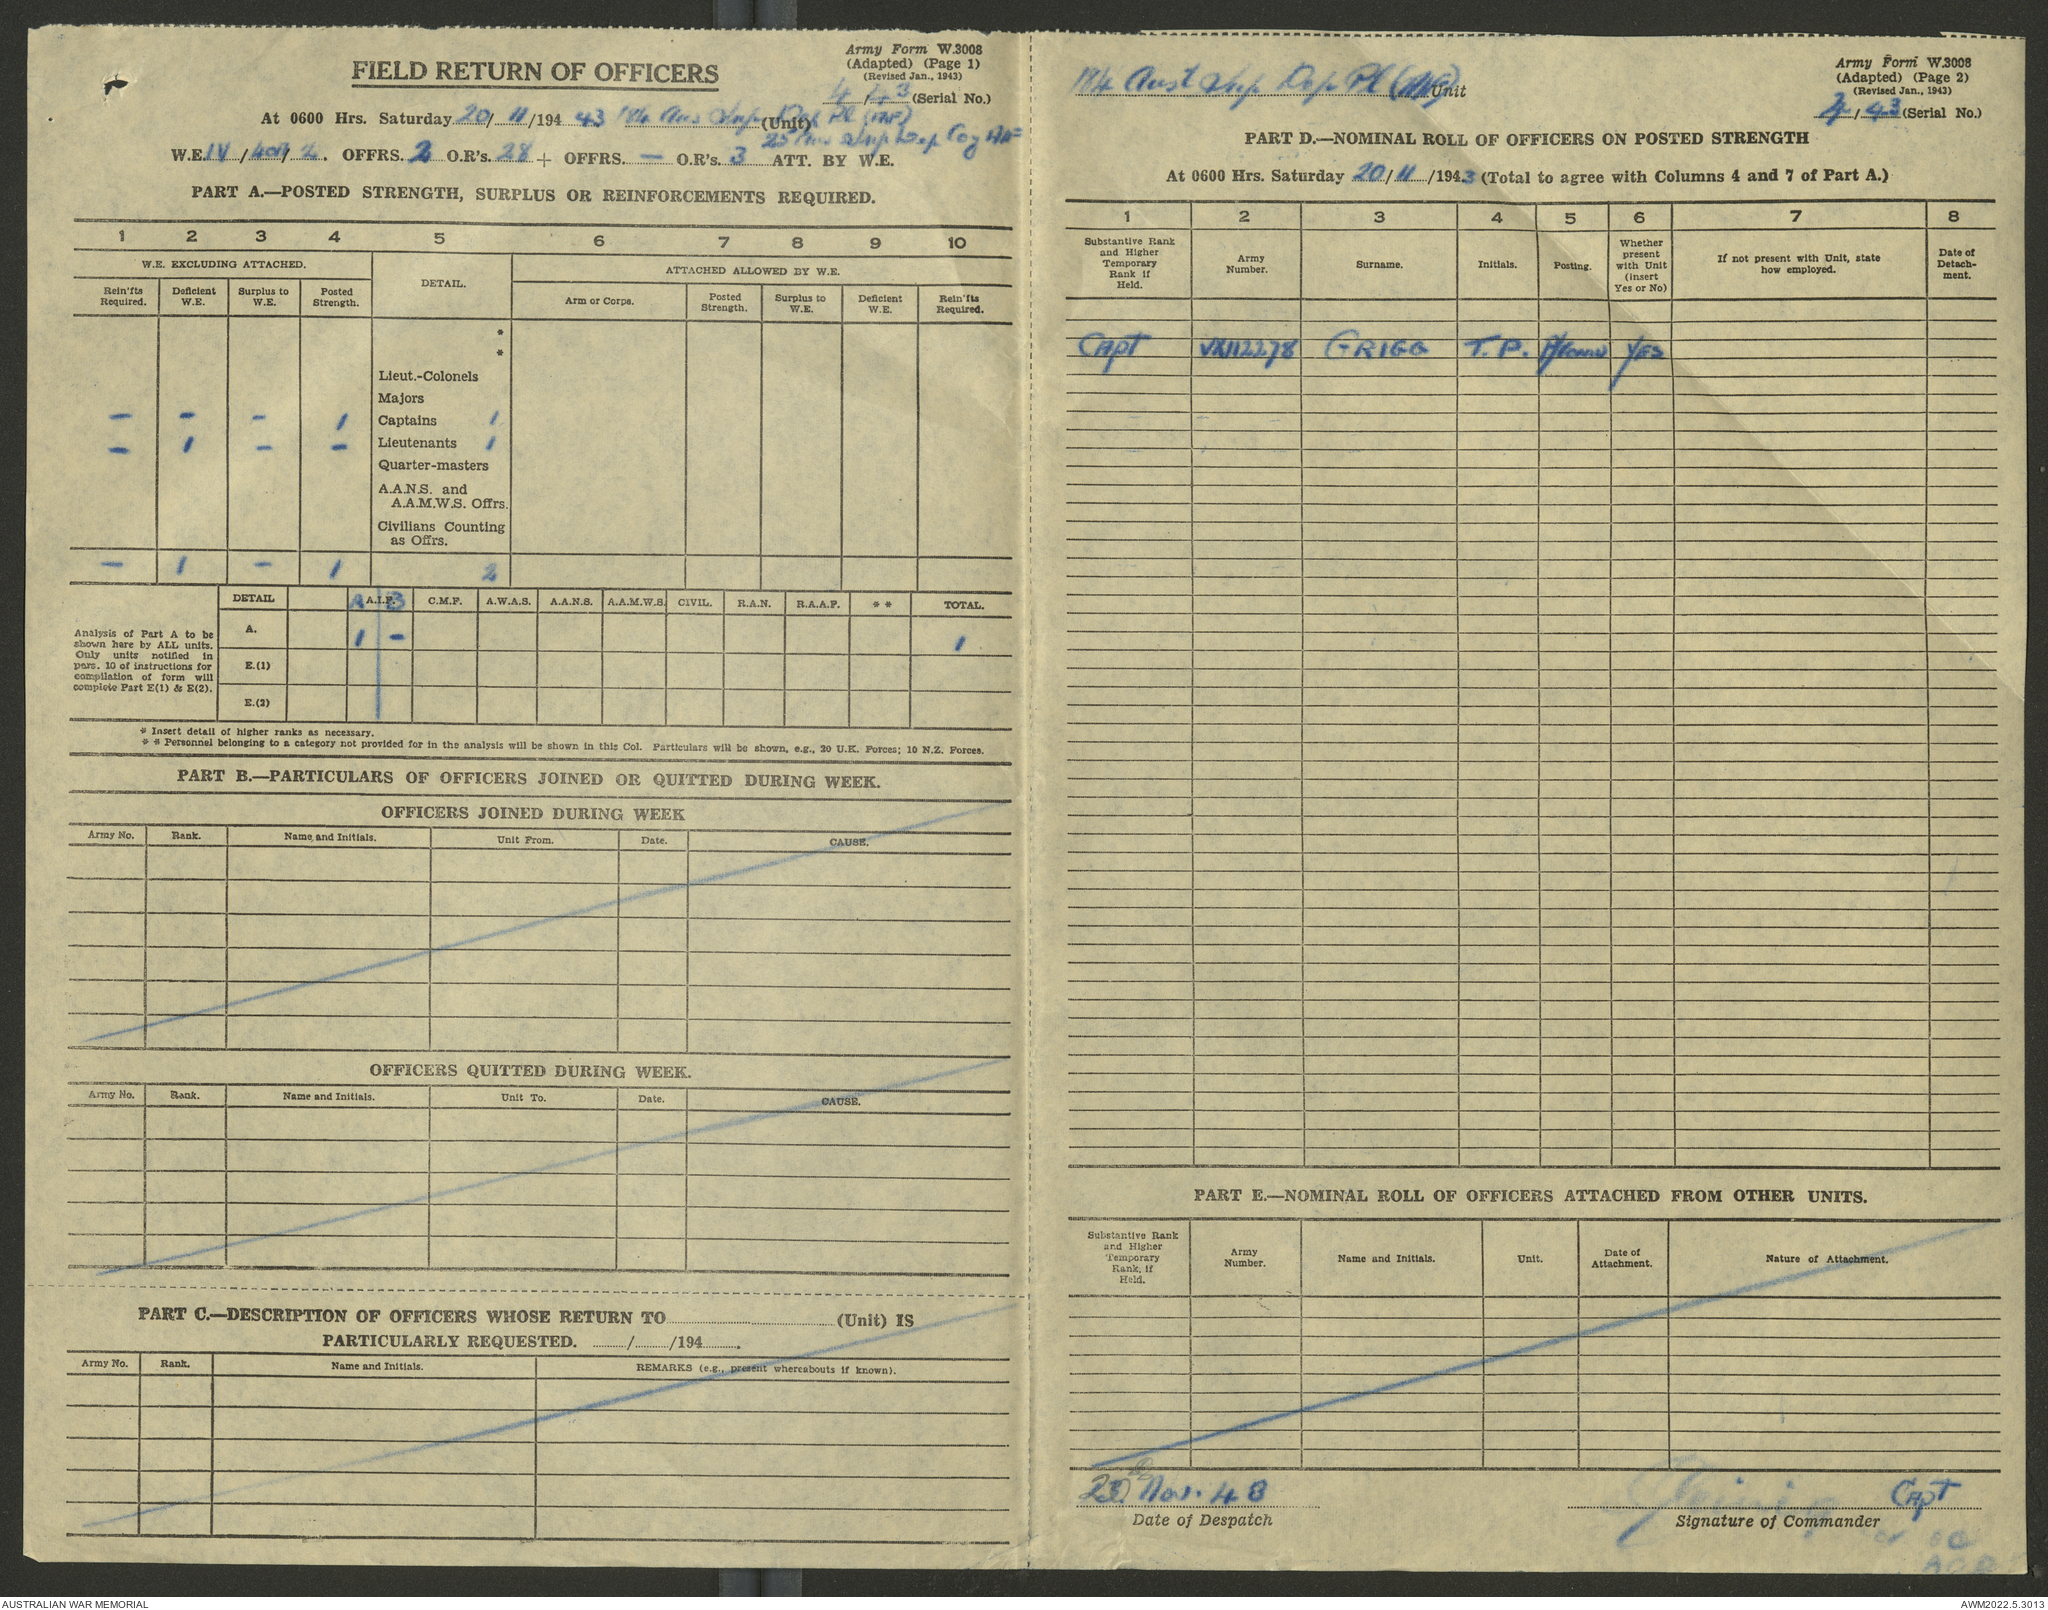 Army Form W.3008
(Adapted) (Page 1)
(Revised Jan., 1943)
FIELD RETURN OF OFFICERS
4/43 (Serial No.)
At 0600 Hrs. Saturday 20/11/1943 184 Aus Sup Dep Pl (Unit)
25 Aus Sup Dep Coy
W.E. IV/ / 2. OFFRS. 2 O.R's. 28 + OFFRS. — O.R's. 3 ATT. BY W.E.
PART A.—POSTED STRENGTH, SURPLUS OR REINFORCEMENTS REQUIRED.
1 2 3 4 5 6 7 8 9 10
W.E. EXCLUDING ATTACHED. DETAIL. ATTACHED ALLOWED BY W.E.
Rein'fts Required. Deficient W.E. Surplus to W.E. Posted Strength. Arm or Corps. Posted Strength. Surplus to W.E. Deficient W.E. Rein'fts Required.
*
*
Lieut.-Colonels
Majors
— — — 1 Captains 1
— 1 — — Lieutenants 1
Quarter-masters
A.A.N.S. and
A.A.M.W.S. Offrs.
Civilians Counting
as Offrs.
— 1 — 1 2
DETAIL A A.I.F. B C.M.F. A.W.A.S. A.A.N.S. A.A.M.W.S. CIVIL. R.A.N. R.A.A.F. * * TOTAL.
Analysis of Part A to be
shown here by ALL units.
Only units notified in
para. 10 of instructions for
compilation of form will
complete Part E(1) & E(2).
A. 1 — 1
E.(1)
E.(2)
* Insert detail of higher ranks as necessary.
* * Personnel belonging to a category not provided for in the analysis will be shown in this Col. Particulars will be shown, e.g., 20 U.K. Forces; 10 N.Z. Forces.
PART B.—PARTICULARS OF OFFICERS JOINED OR QUITTED DURING WEEK.
OFFICERS JOINED DURING WEEK
Army No. Rank. Name and Initials. Unit From. Date. CAUSE.
OFFICERS QUITTED DURING WEEK.
Army No. Rank. Name and Initials. Unit To. Date. CAUSE.
PART C.—DESCRIPTION OF OFFICERS WHOSE RETURN TO (Unit) IS
PARTICULARLY REQUESTED. / /194 .
Army No. Rank. Name and Initials. REMARKS (e.g., present whereabouts if known).
Army Form W.3008
(Adapted) (Page 2)
(Revised Jan., 1943)
184 Aust Sup Dep Pl Unit
4/43 (Serial No.)
PART D.—NOMINAL ROLL OF OFFICERS ON POSTED STRENGTH
At 0600 Hrs. Saturday 20/11/1943 (Total to agree with Columns 4 and 7 of Part A.)
1 2 3 4 5 6 7 8
Substantive Rank and Higher Temporary Rank if Held. Army Number. Surname. Initials. Posting. Whether present with Unit (insert Yes or No) If not present with Unit, state how employed. Date of Detach-ment.
Capt VX112278 GRIGG T.P. YES
PART E.—NOMINAL ROLL OF OFFICERS ATTACHED FROM OTHER UNITS.
Substantive Rank and Higher Temporary Rank, if Held. Army Number. Name and Initials. Unit. Date of Attachment. Nature of Attachment.
20 Nov. 43 Capt
Date of Despatch Signature of Commander
AUSTRALIAN WAR MEMORIAL AWM2022.5.3013